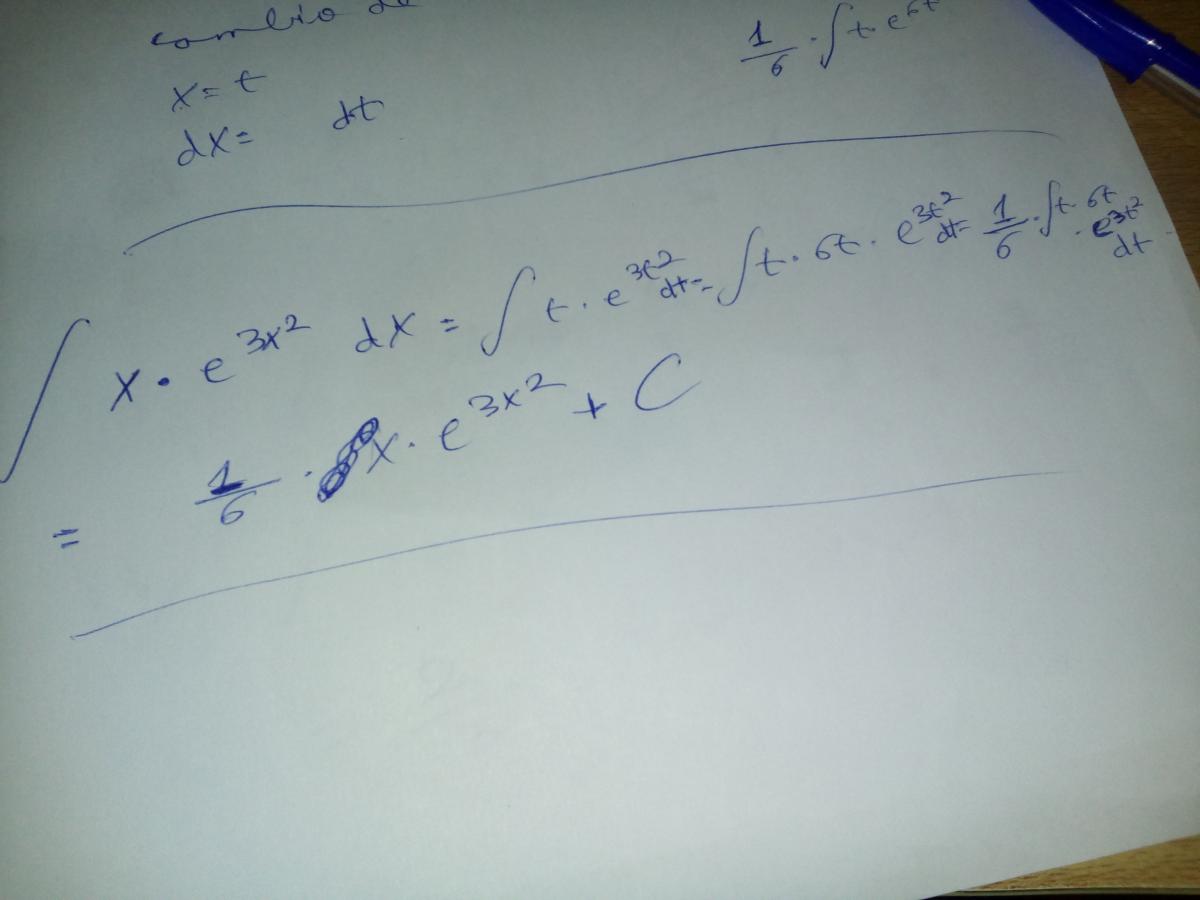 cambio de
1/6 · ∫ t · e^6t
x = t
dx = dt
∫ x · e^3x² dx = ∫ t · e^3t² dt = ∫ t · 6t · e^3t² dt = 1/6 · ∫ t · 6t · e^3t² dt
= 1/6 · x · e^3x² + C